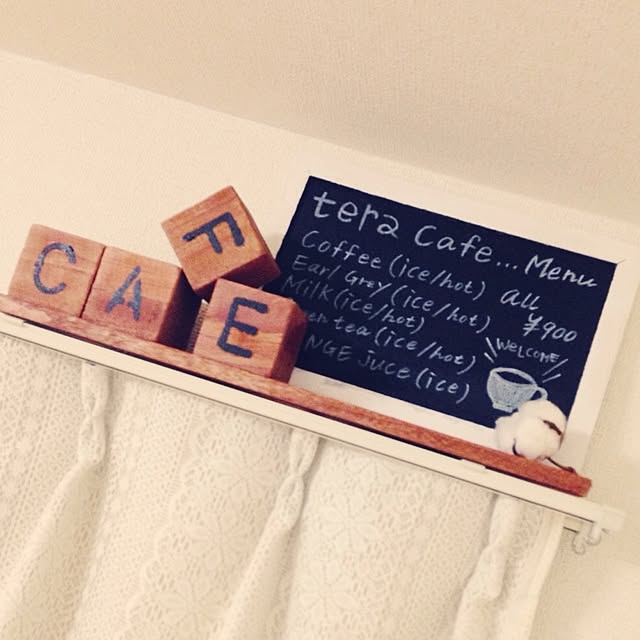 C A F E
tera cafe... Menu
Coffee (ice/hot)
Earl Grey (ice/hot)
Milk (ice/hot)
tea (ice/hot)
JUCE (ice)
all
¥900
WELCOME